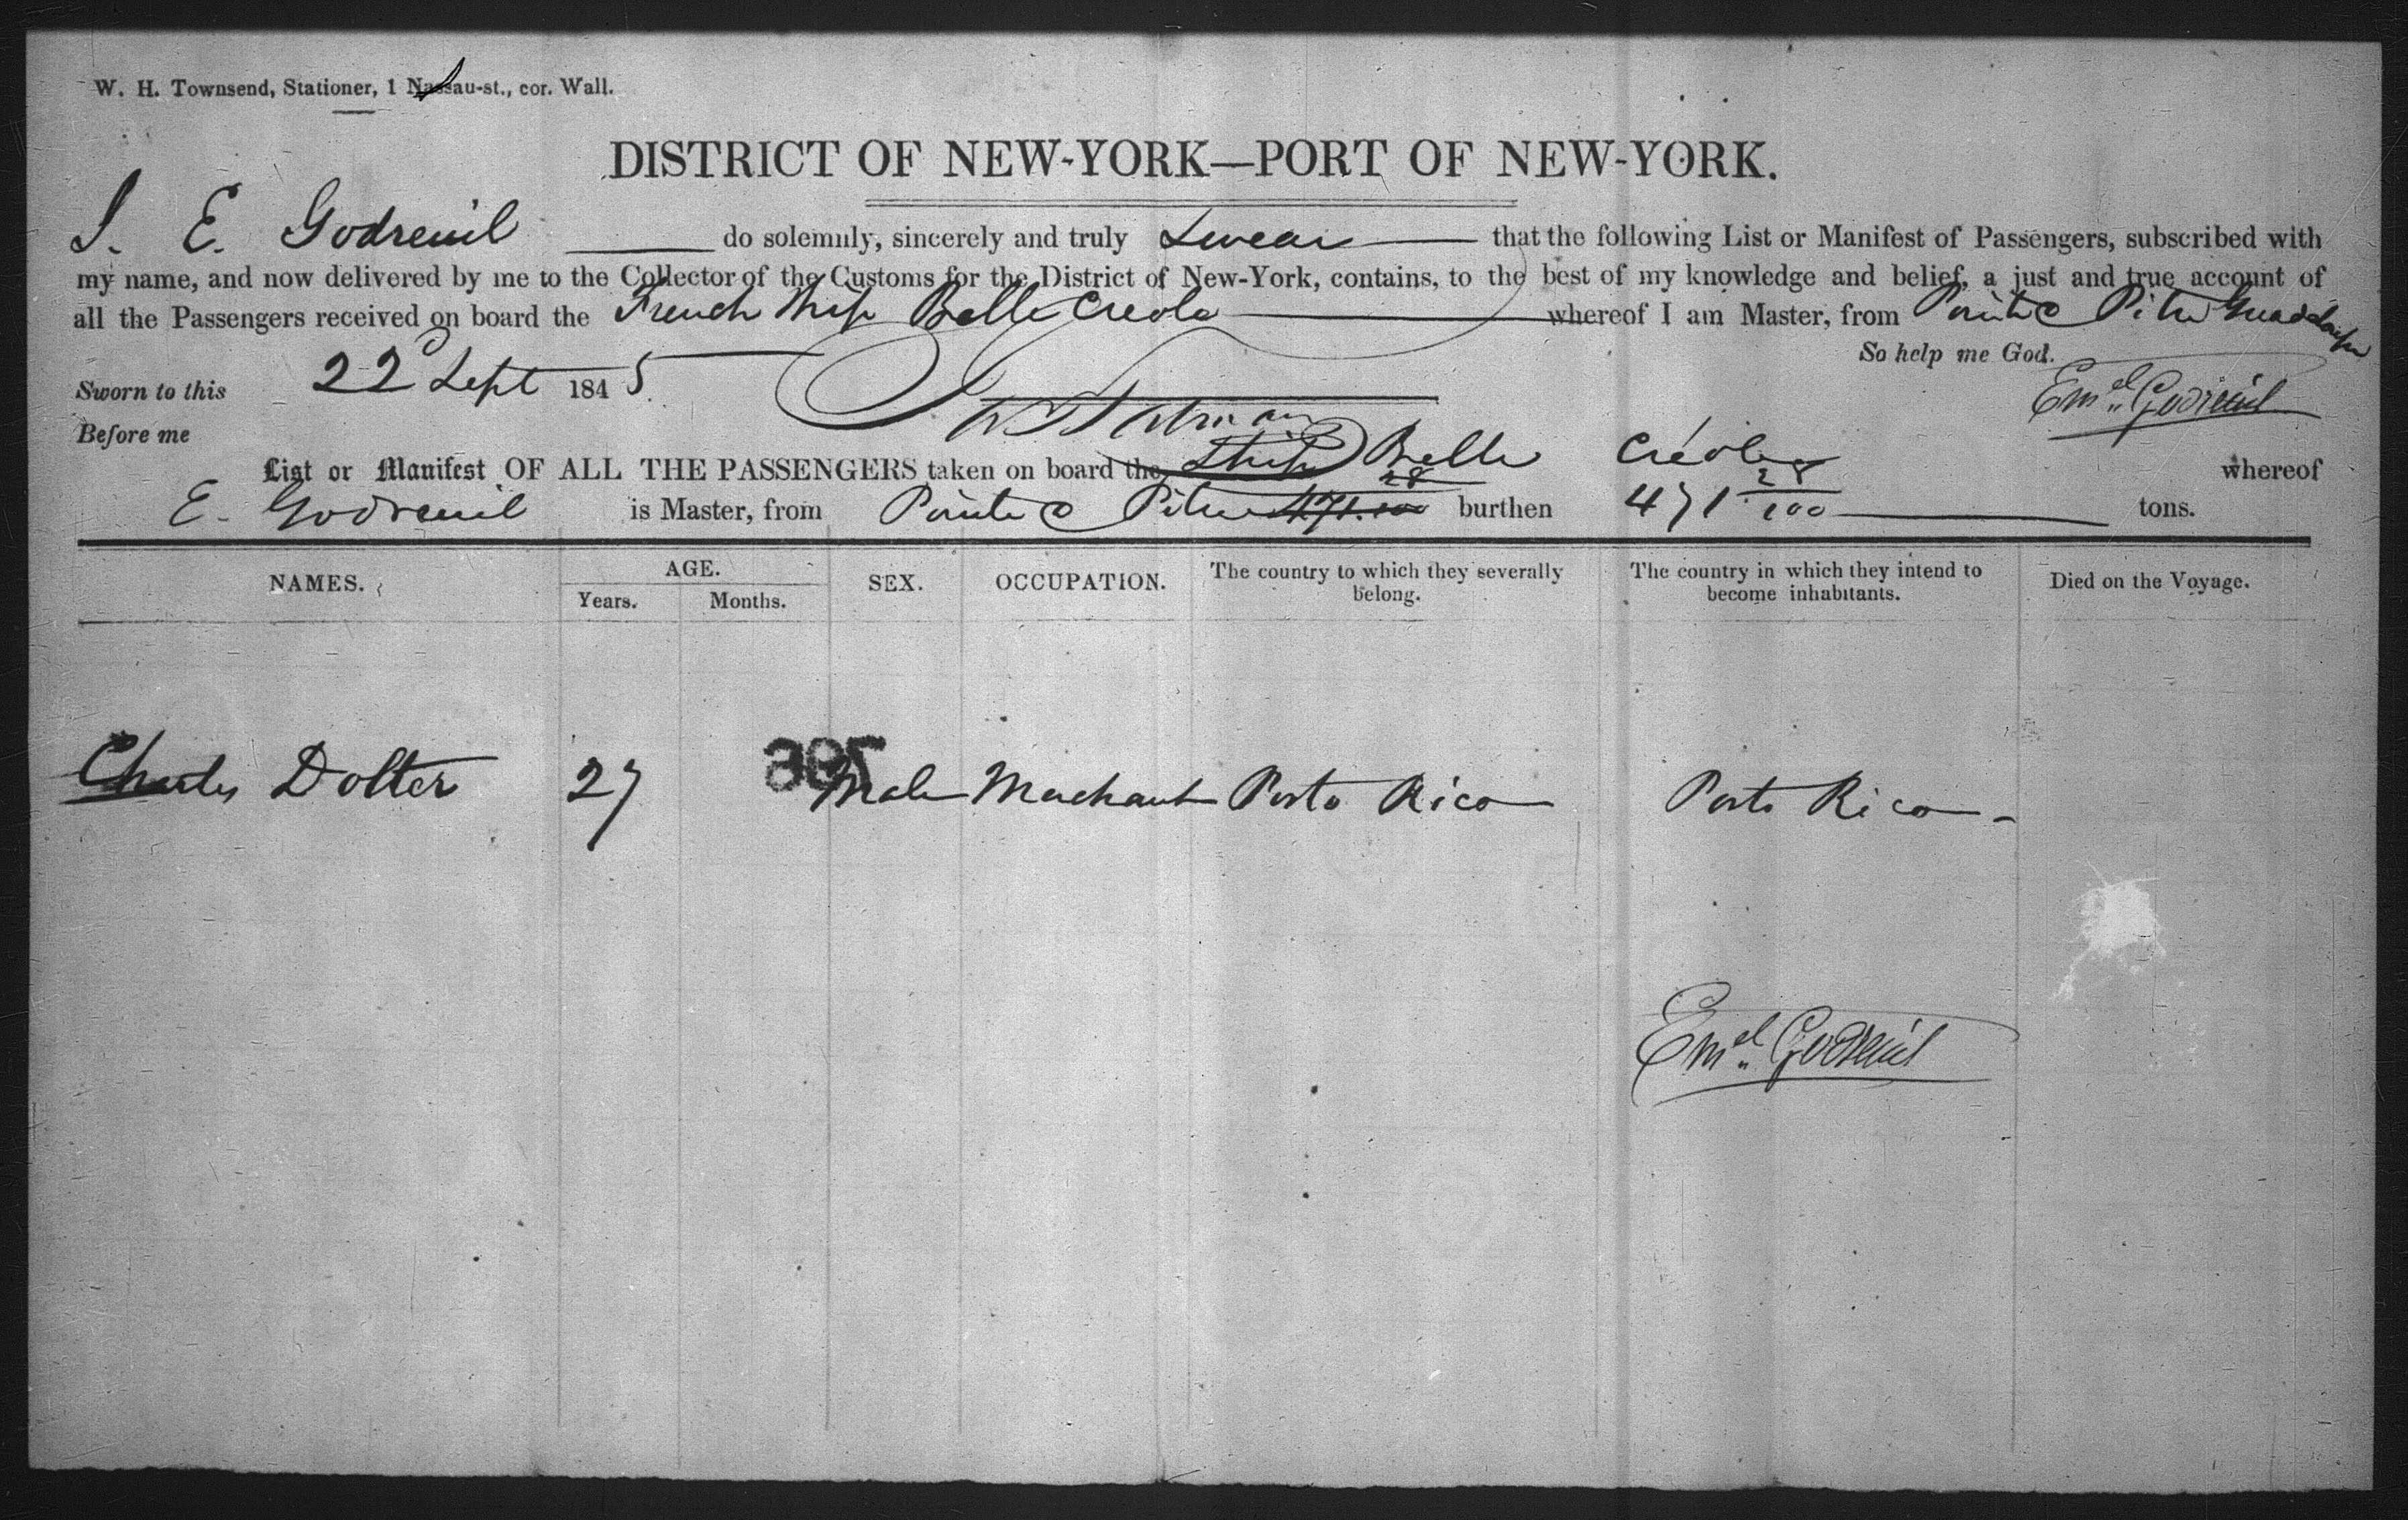 W. H. Townsend, Stationer, 1 Nassau-st., cor. Wall.
DISTRICT OF NEW-YORK—PORT OF NEW-YORK.
I. E. Godreuil do solemnly, sincerely and truly Swear that the following List or Manifest of Passengers, subscribed with
my name, and now delivered by me to the Collector of the Customs for the District of New-York, contains, to the best of my knowledge and belief, a just and true account of
all the Passengers received on board the French Ship Belle Creole whereof I am Master, from Pointe Pitre Guadaloupe
So help me God.
Sworn to this 22 Sept 1845
Emel Godreuil
Before me
List or Manifest OF ALL THE PASSENGERS taken on board the Ship Belle Créole whereof
E. Godreuil is Master, from Pointe Pitre 471.28/100 burthen 471 28/100 tons.
NAMES. AGE. SEX. OCCUPATION. The country to which they severally belong. The country in which they intend to become inhabitants. Died on the Voyage.
Years. Months.
395
Charles Dolter 27 Male Merchant Porto Rico Porto Rico
Emel Godreuil